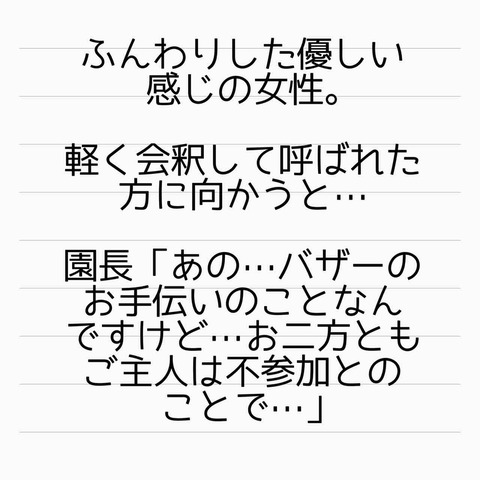 ふんわりした優しい
感じの女性。
軽く会釈して呼ばれた
方に向かうと…
園長「あの…バザーの
お手伝いのことなん
ですけど…お二方とも
ご主人は不参加との
ことで…」